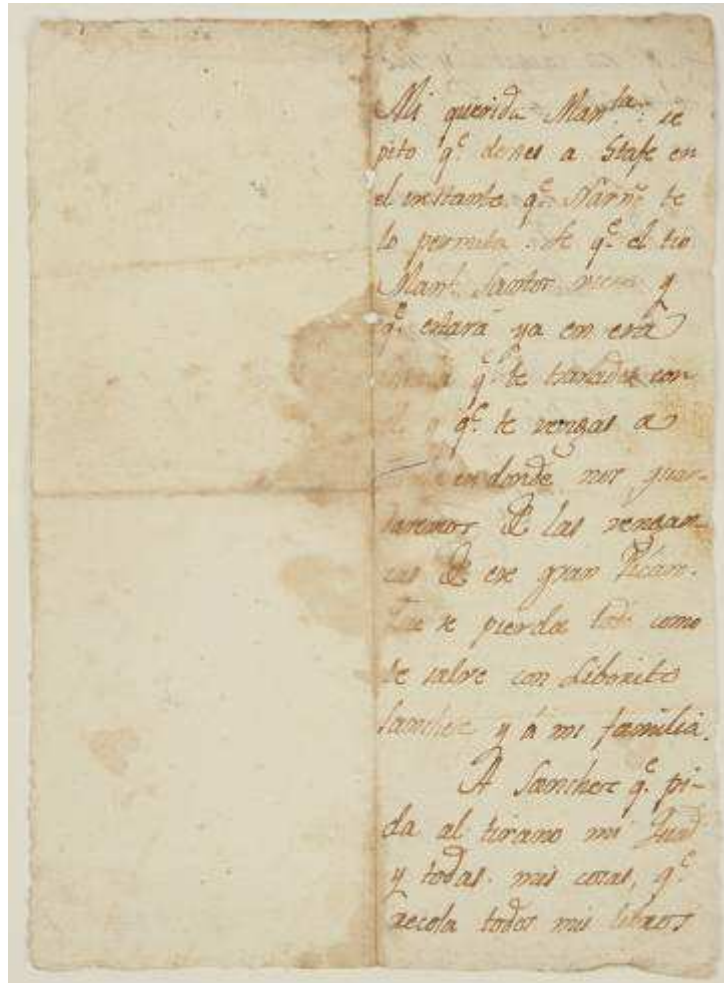 Mi querida Man.ta: te
pito q.e dexes a Stafe en
el instante q.e Nariñ.o te
lo permita. Se q.e el tio
Man.l Santos viene y
q.e estará ya en esa
q.e te trasades con
el y q.e te vengas a
en donde nos guar-
daremos de las vengan-
zas de ese gran Pícaro.
Que se pierda todo como
se salve con Liborito
Sanchez y à mi familia.
A Sanchez q.e pi-
da al tirano mi
y todas mis cosas, q.e
recoja todos mis libros